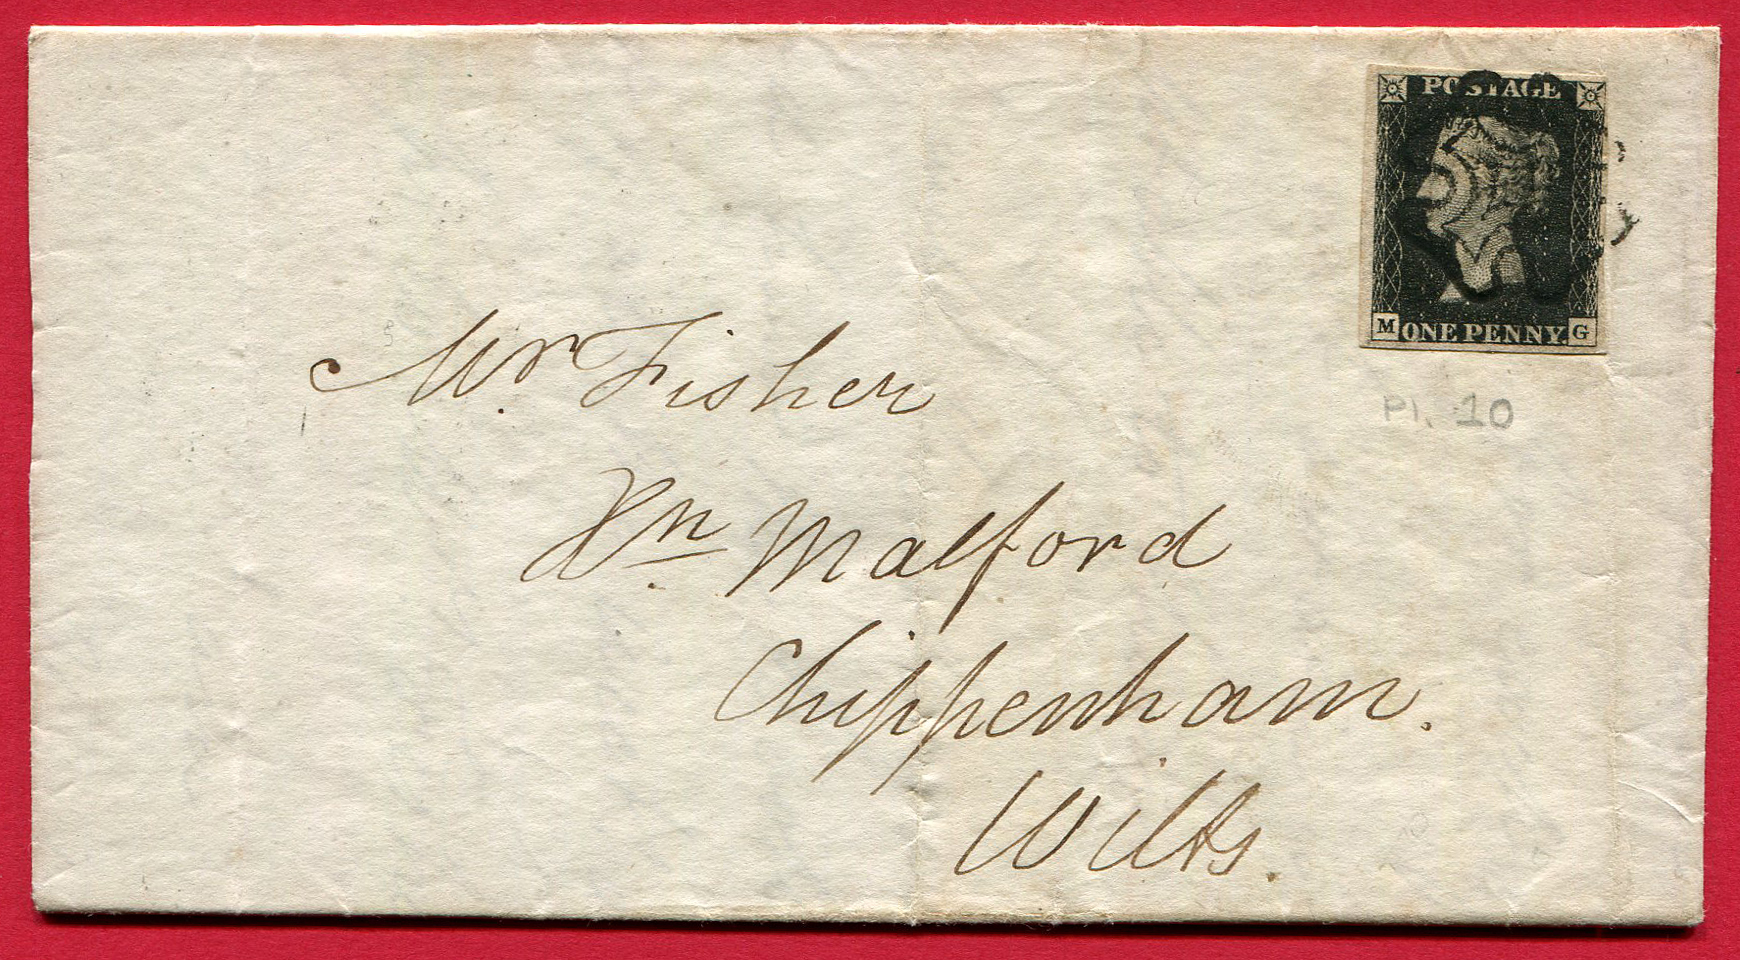 POSTAGE
M ONE PENNY. G
Pl. 10
Mr. Fisher
Xn. Malford
Chippenham.
Wilts.